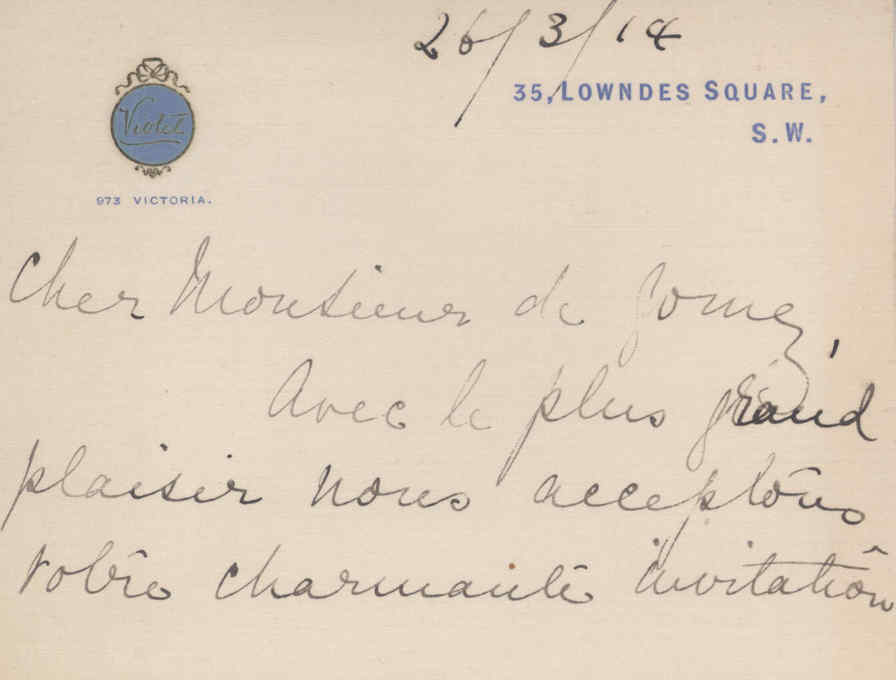 26/3/14
35, LOWNDES SQUARE,
S.W.
Violet
973 VICTORIA.
Cher Monsieur de Gomez,
Avec le plus grand
plaisir nous acceptons
votre charmante invitation